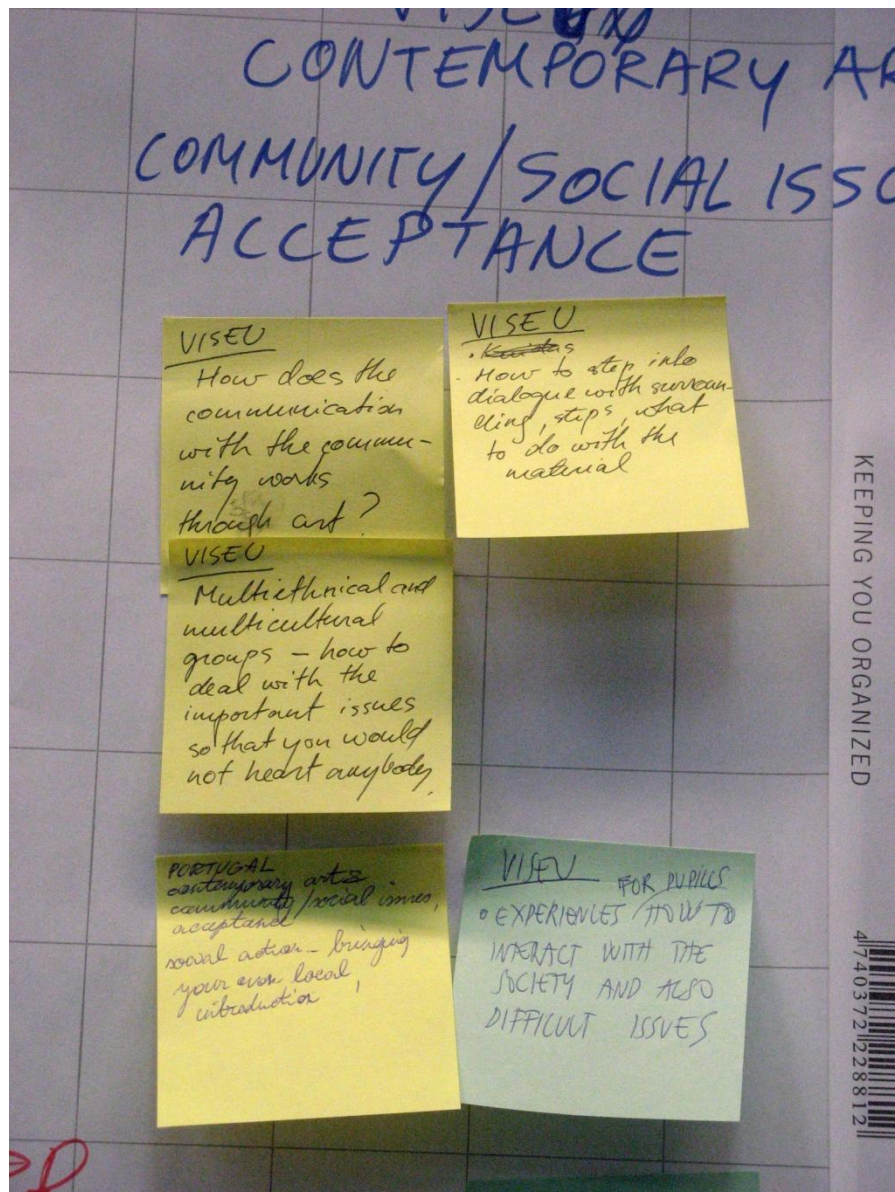 CONTEMPORARY AR
COMMUNITY/SOCIAL ISSU
ACCEPTANCE
VISEU
How does the
communication
with the commu-
nity works
through art?
VISEU
How to step into
dialogue with surroun-
ding, steps, what
to do with the
material
VISEU
Multiethnical and
multicultural
groups - how to
deal with the
important issues
so that you would
not heart anybody.
PORTUGAL
contemporary arts
community/social issues,
acceptance
social action - bringing
your own local
introduction
VISEU
FOR PUPILLS
• EXPERIENCES / HOW TO
INTERACT WITH THE
SOCIETY AND ALSO
DIFFICULT ISSUES
KEEPING YOU ORGANIZED
4740372228812